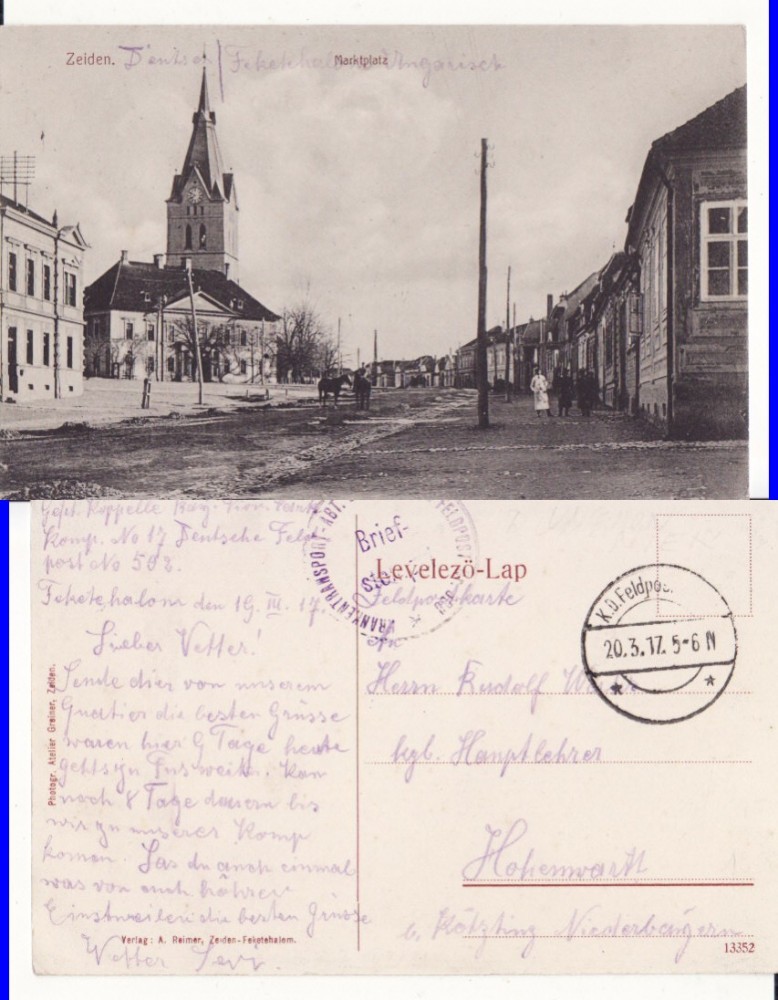 Zeiden. Deutsch / Feketehalom Ungarisch
Marktplatz
Gefr. Koppelle Bay.
Komp. No 17 Deutsche Feld
post No 502.
Feketehalom den 19. III. 17.
Lieber Vetter!
Sende dier von unserem
Quatier die besten Grüsse
waren hier 9 Tage heute
gehts zu Fus weiter. Kan
noch 8 Tage dauern bis
wir zu unserer Komp
komen. Las du auch einmal
was von euch höhren
Einstweilen die besten Grüsse
Vetter
Photogr. Atelier Greiner, Zeiden.
Verlag: A. Reimer, Zeiden-Feketehalom.
KRANKENTRANSPORT-ABT.
FELDPOST
Brief-
stem
Levelező-Lap
Feldpostkarte
An
Herrn Rudolf
kgl. Hauptlehrer
Hohenwarth
b. Kötzting Niederbayern
K.D. Feldpost.
20.3.17. 5-6 N
13352